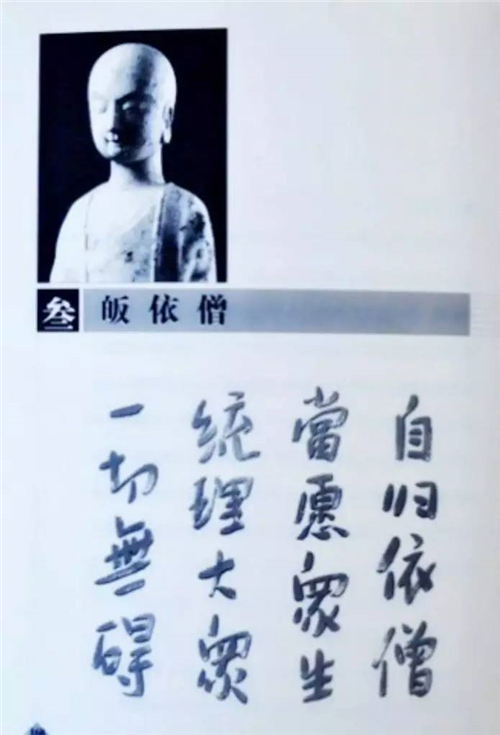 叁 皈依僧
自归依僧
當愿眾生
统理大眾
一切無碍